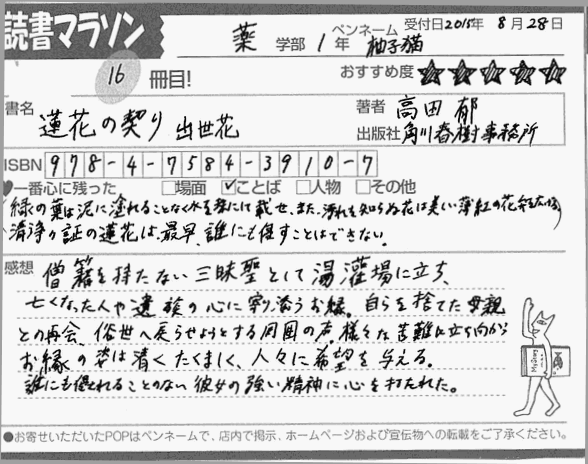 読書マラソン
薬 学部 1年 ペンネーム 柚子猫 受付日2015年 8月28日
16 冊目! おすすめ度 ★★★★★
書名 蓮花の契り 出世花
著者 高田 郁
出版社 角川春樹事務所
ISBN 978-4-7584-3910-7
一番心に残った □場面 ☑ことば □人物 □その他
緑の葉は泥に塗れることなく水を珠にして載せ、また、汚れを知らぬ花は美しい薄紅の花弁を広げる
清浄の証の蓮花は、最早、誰にも侵すことはできない。
感想 僧籍を持たない三昧聖として湯灌場に立ち、
亡くなった人や遺族の心に寄り添うお縁。自らを捨てた母親
との再会、俗世へ戻らせようとする周囲の声。様々な苦難に立ち向かう
お縁の姿は清くたくましく、人々に希望を与える。
誰にも侵されることのない彼女の強い精神に心を打たれた。
●お寄せいただいたPOPはペンネームで、店内で掲示、ホームページおよび宣伝物への転載をご了承ください。